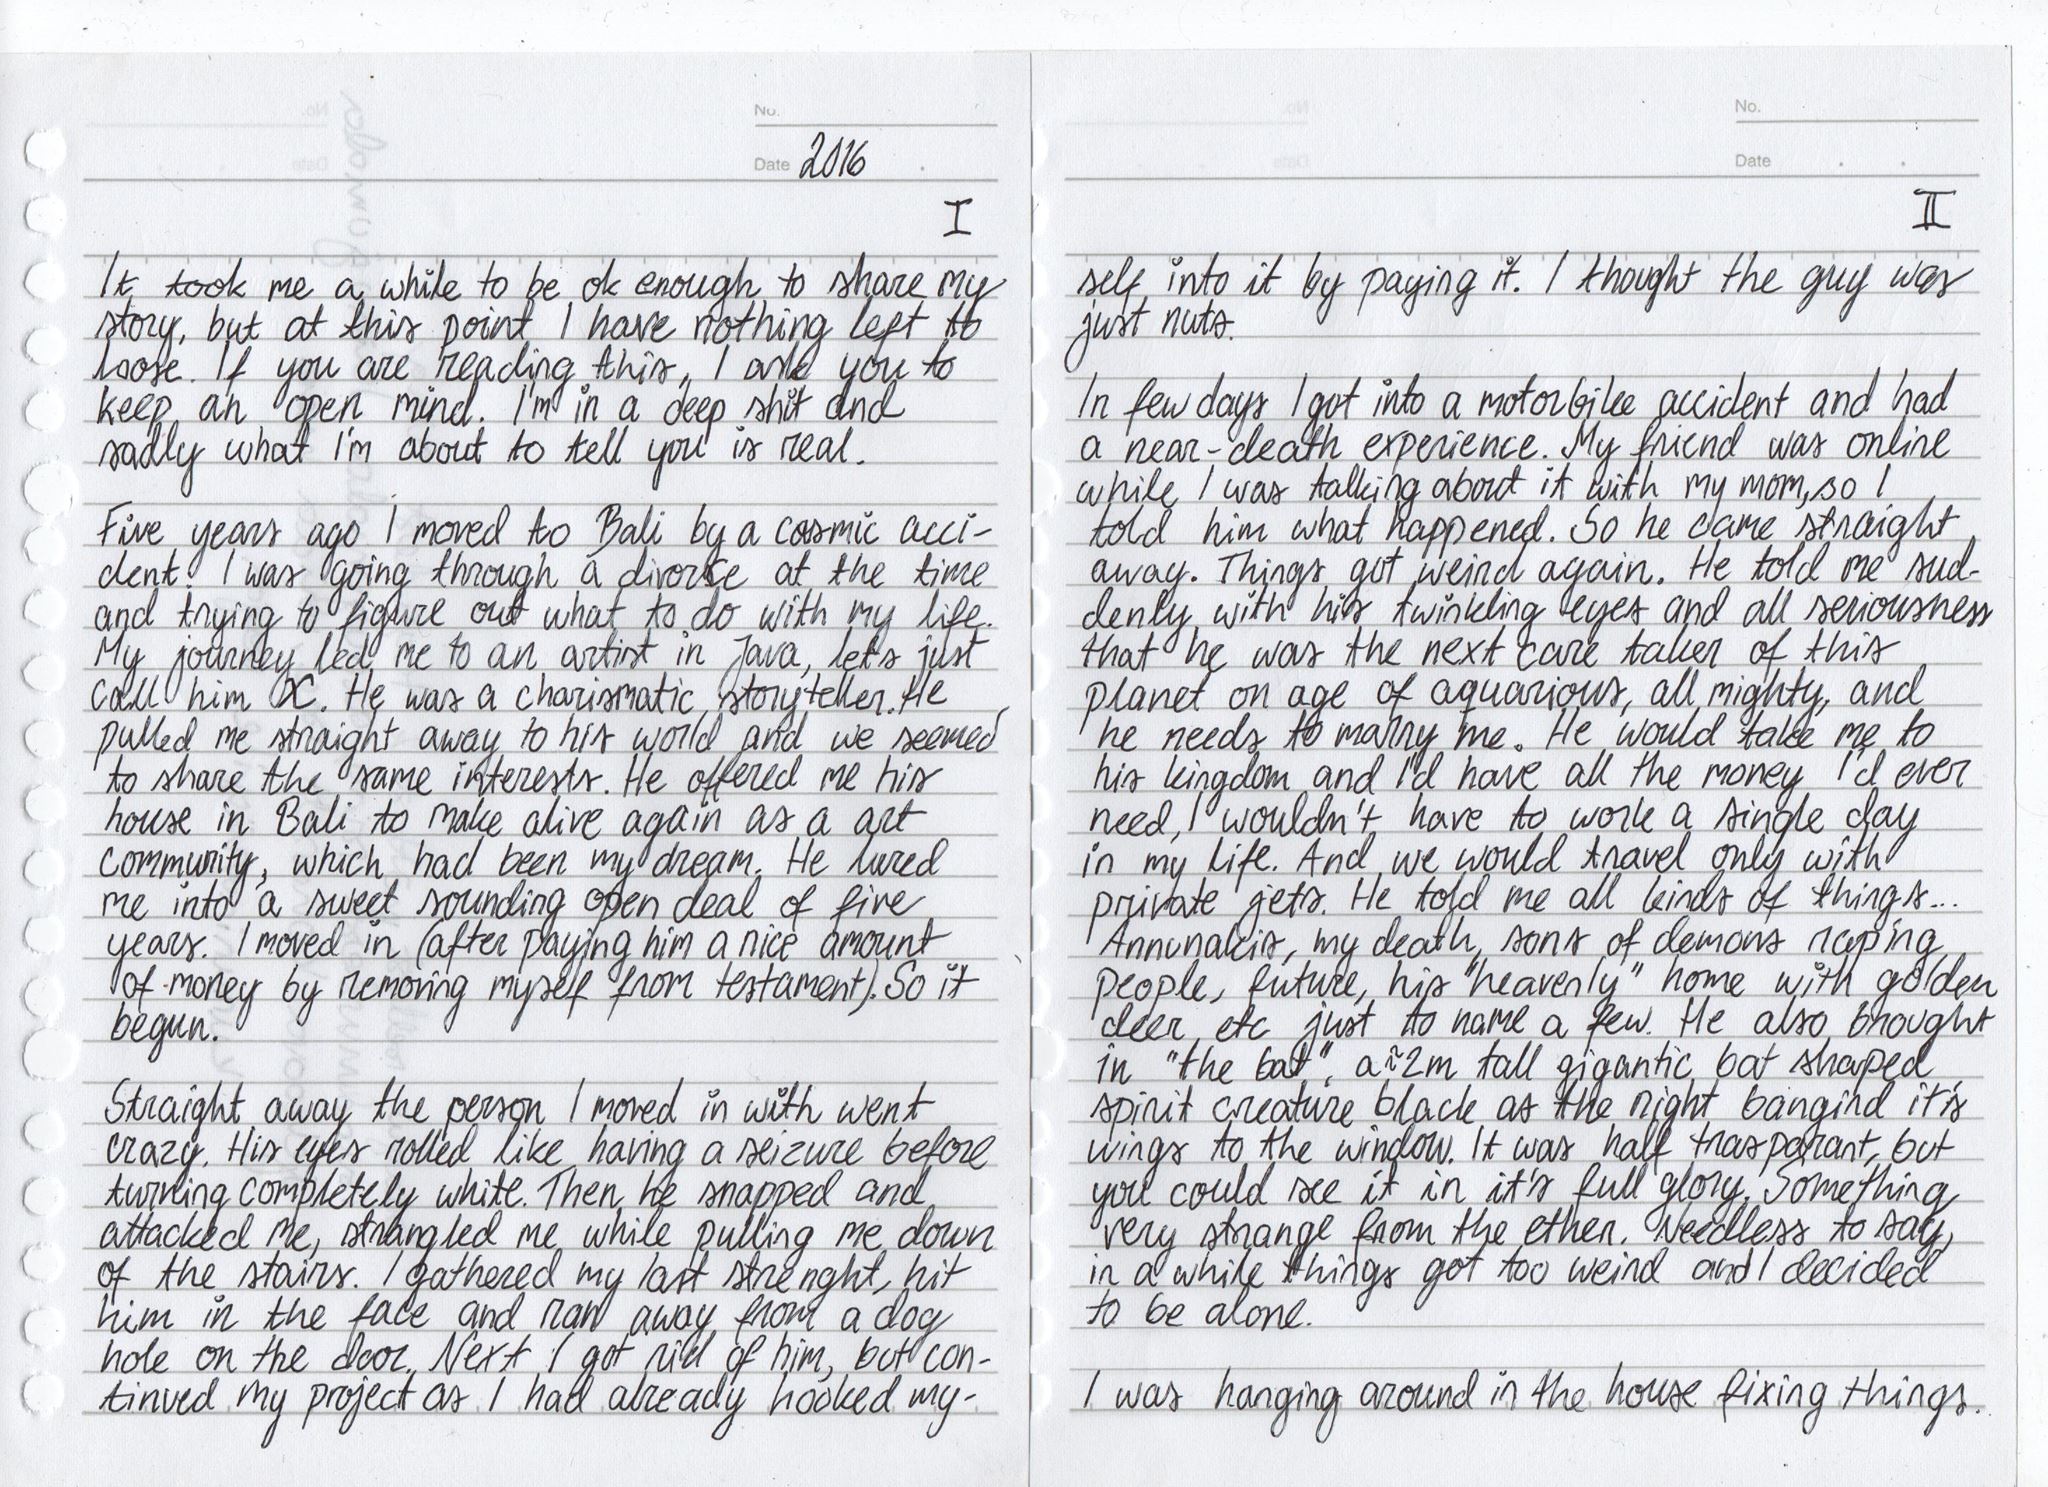 No.
Date 2016
I
It took me a while to be ok enough to share my
story, but at this point I have nothing left to
loose. If you are reading this, I ask you to
keep an open mind. I'm in a deep shit and
sadly what I'm about to tell you is real.
Five years ago I moved to Bali by a cosmic acci-
dent. I was going through a divorce at the time
and trying to figure out what to do with my life.
My journey led me to an artist in Java, let's just
call him X. He was a charismatic storyteller. He
pulled me straight away to his world and we seemed
to share the same interests. He offered me his
house in Bali to make alive again as a art
community, which had been my dream. He lured
me into a sweet sounding open deal of five
years. I moved in (after paying him a nice amount
of money by removing myself from testament). So it
begun.
Straight away the person I moved in with went
crazy. His eyes rolled like having a seizure before
turning completely white. Then he snapped and
attacked me, strangled me while pulling me down
of the stairs. I gathered my last strenght, hit
him in the face and ran away from a dog
hole on the door. Next I got rid of him, but con-
tinued my project as I had already hooked my-
No.
Date
II
self into it by paying it. I thought the guy was
just nuts.
In few days I got into a motorbike accident and had
a near-death experience. My friend was online
while I was talking about it with my mom, so I
told him what happened. So he came straight
away. Things got weird again. He told me sud-
denly with his twinkling eyes and all seriousness
that he was the next care taker of this
planet on age of aquarious, all mighty, and
he needs to marry me. He would take me to
his kingdom and I'd have all the money I'd ever
need, I wouldn't have to work a single day
in my life. And we would travel only with
private jets. He told me all kinds of things...
Annunakis, my death, sons of demons raping
people, future, his "heavenly" home with golden
deer etc just to name a few. He also brought
in "the bat", a ~2m tall gigantic bat shaped
spirit creature black as the night bangind it's
wings to the window. It was half trasparant, but
you could see it in it's full glory. Something
very strange from the ether. Needless to say,
in a while things got too weird and I decided
to be alone.
I was hanging around in the house fixing things.